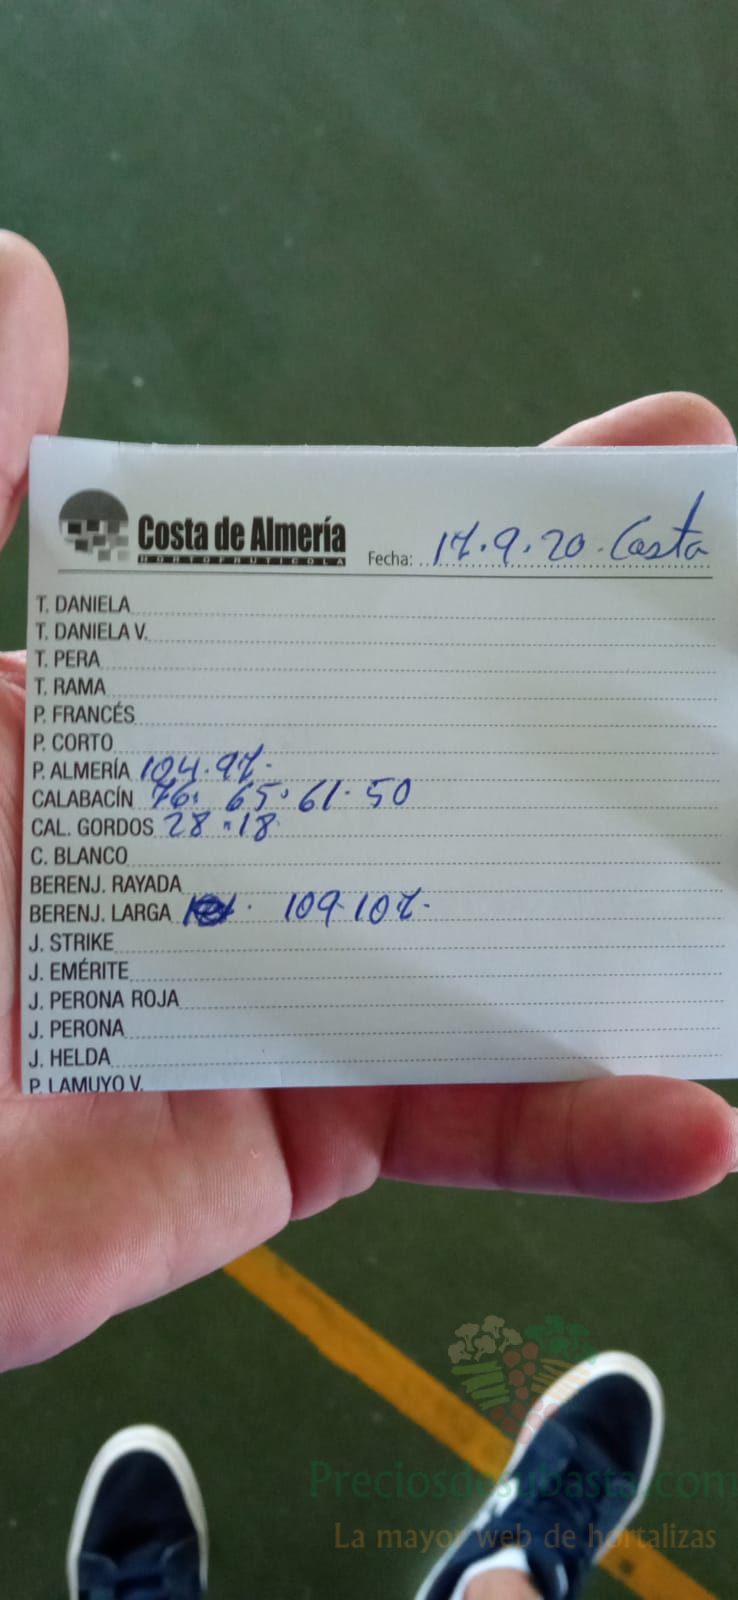 Costa de Almería
HORTOFRUTICOLA
Fecha: 17.9.20. Costa
T. DANIELA
T. DANIELA V.
T. PERA
T. RAMA
P. FRANCÉS
P. CORTO
P. ALMERÍA 104.97.
CALABACÍN 76. 65.61.50
CAL. GORDOS 28.18
C. BLANCO
BERENJ. RAYADA
BERENJ. LARGA 109.107.
J. STRIKE
J. EMÉRITE
J. PERONA ROJA
J. PERONA
J. HELDA
P. LAMUYO V.
Preciosdesubasta.com
La mayor web de hortalizas